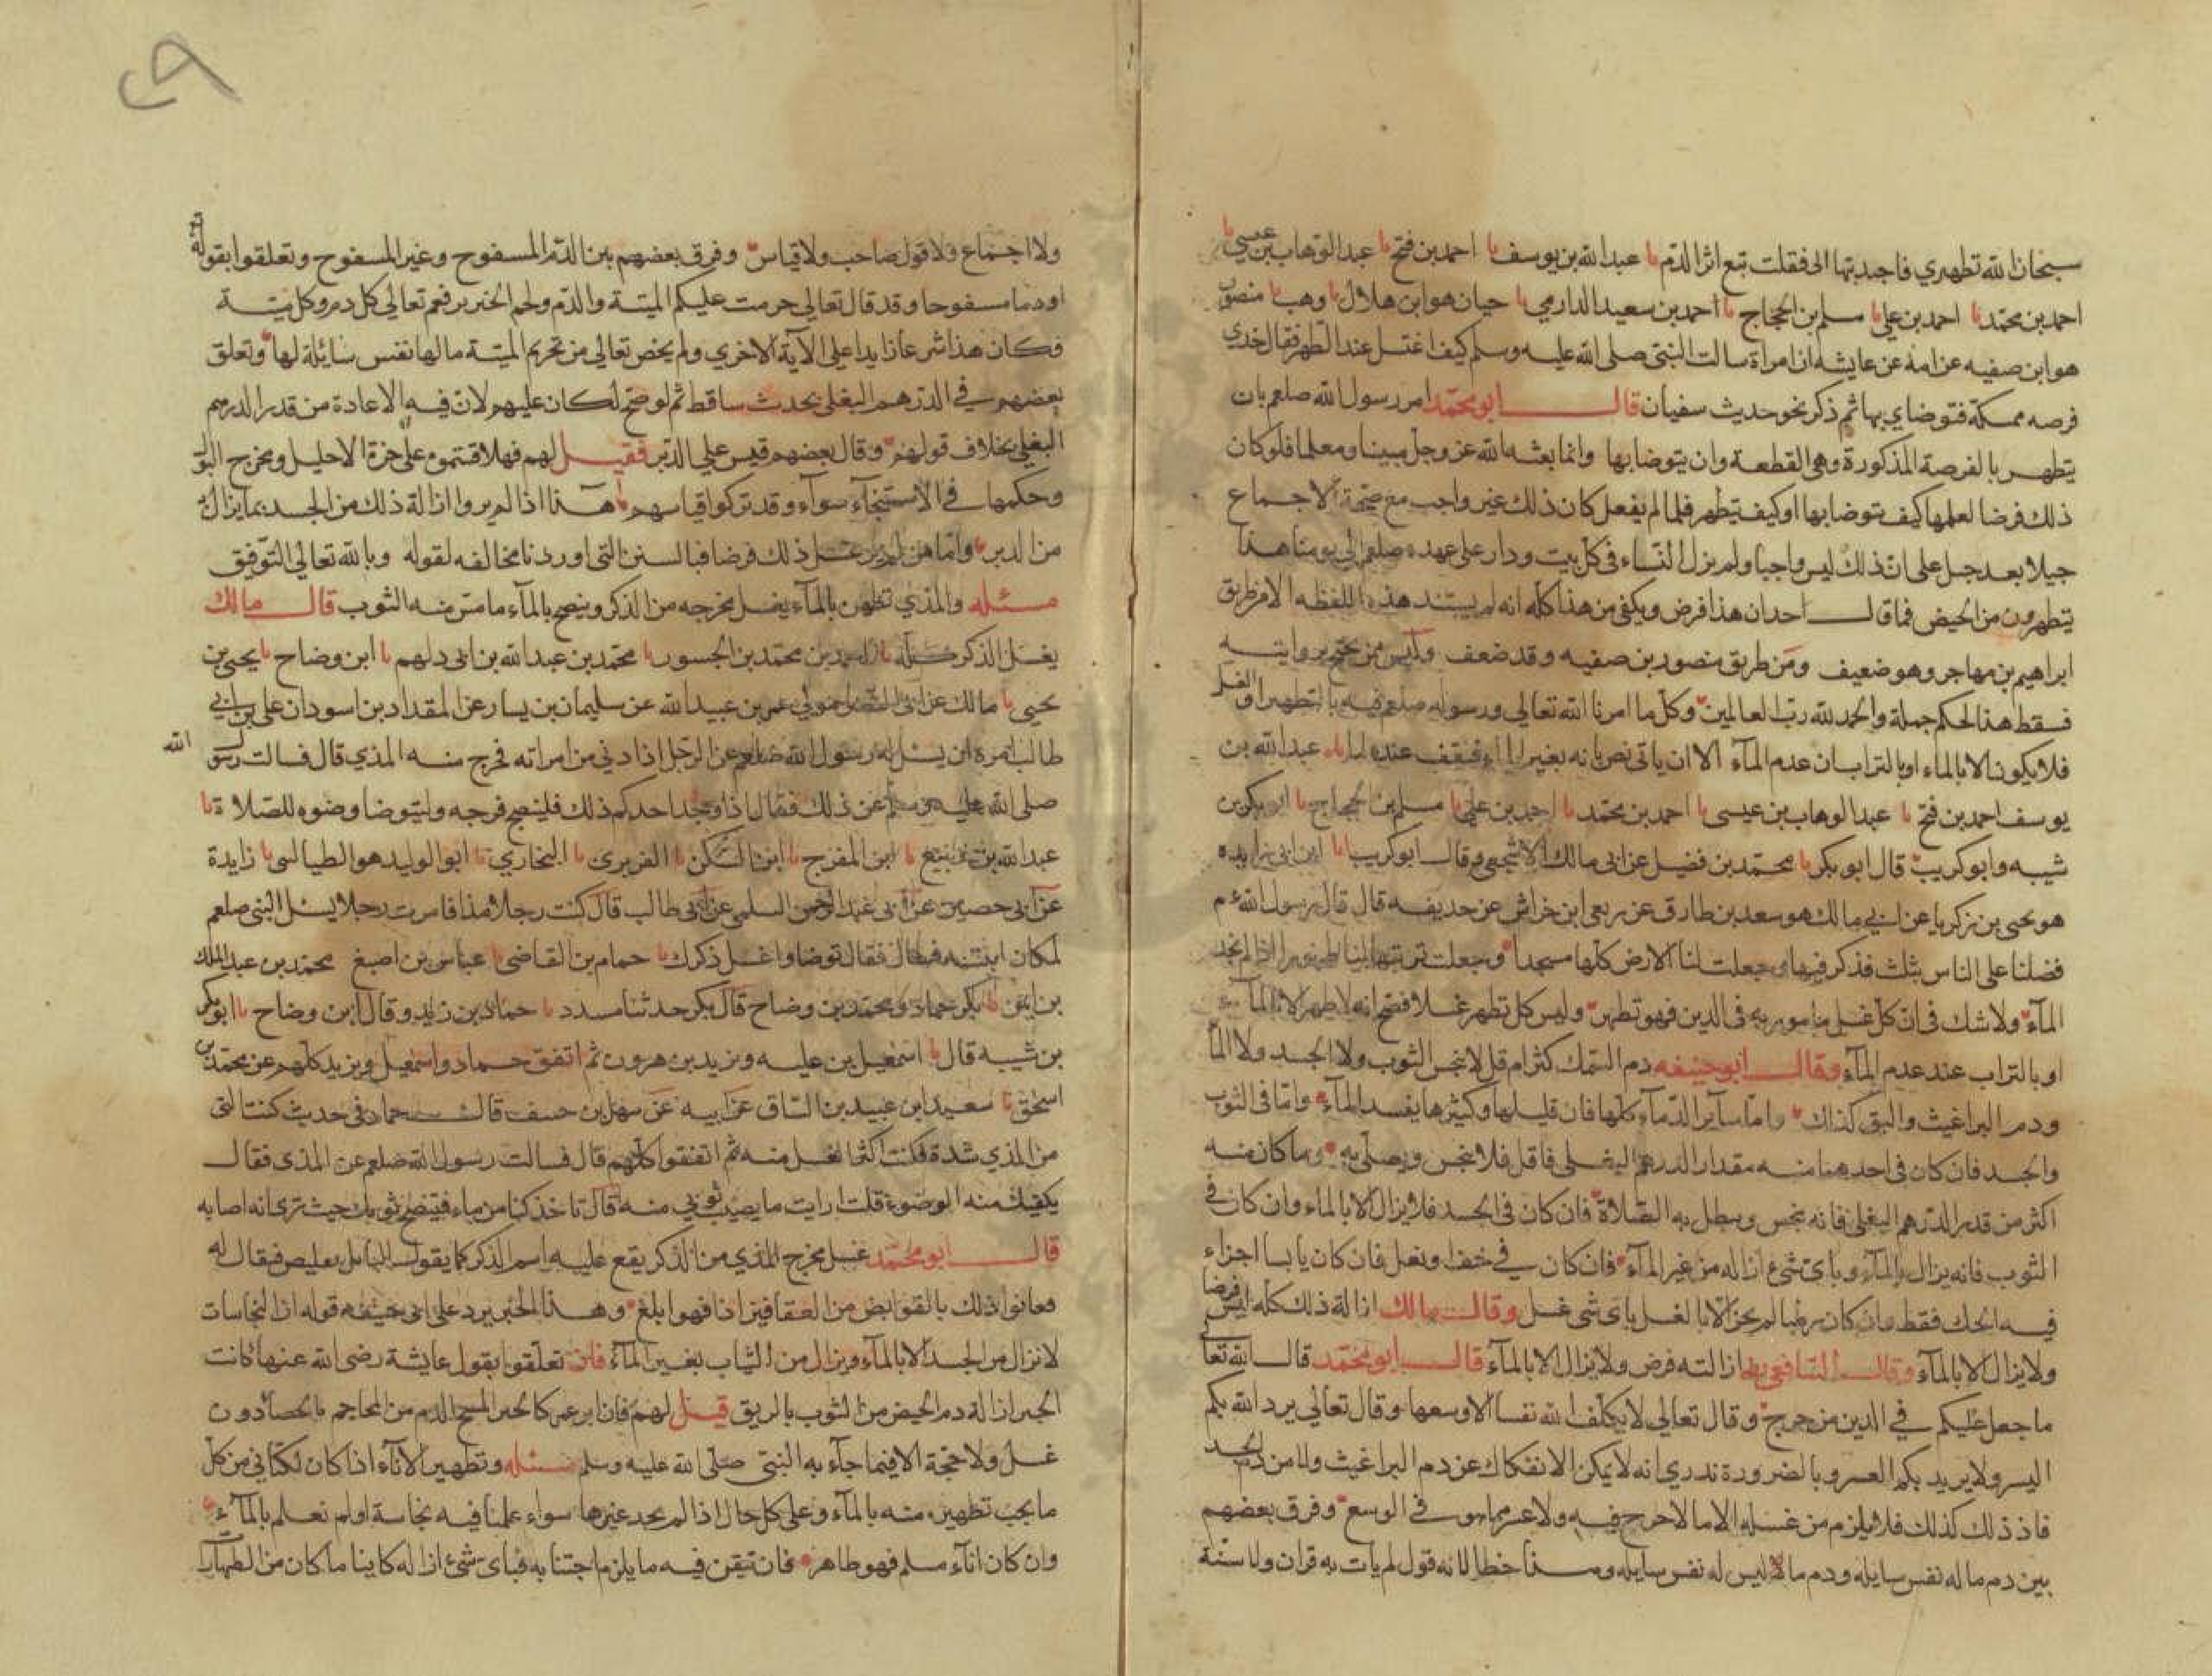 سبحان الله تطهري فاجتذبتها الى فقلت تتبع اثر الدم نا عبد الله بن يوسف نا احمد بن فتح نا عبد الوهاب بن عيسى نا
احمد بن محمد نا احمد بن علي نا مسلم بن الحجاج نا احمد بن سعيد الدارمي نا حبان هو ابن هلال نا وهب نا منصور
هو ابن صفيه عن امه عن عايشه ان امراة سالت النبي صلى الله عليه وسلم كيف اغتسل عند الطهر فقال خذي
فرصه ممسكة فتوضاي بها ثم ذكر نحو حديث سفيان قال ابو محمد امر رسول الله صلعم بان
يتطهر بالفرصة المذكورة وهي القطعة وان يتوضا بها وانما بعثه الله عز وجل مبينا ومعلما فلو كان
ذلك فرضا لعلمها كيف يتوضا بها او كيف يتطهر فلما لم يفعل كان ذلك غير واجب مع صحة الاجماع
جيلا بعد جيل على ان ذلك ليس واجبا ولم يزل النساء في كل بيت ودار على عهده صلعم الى يومنا هذا
يتطهرون من الحيض فما قال احد ان هذا فرض ويكفي من هذا كله انه لم يسند هذه اللفظه الا من طريق
ابراهيم بن مهاجر وهو ضعيف ومن طريق منصور بن صفيه وقد ضعف وليس ممن يحتج بروايته
فسقط هذا الحكم جملة والحمد لله رب العالمين وكل ما امرنا الله تعالي ورسوله صلعم فيه بالتطهير او الغسل
فلا يكون الا بالماء او بالتراب ان عدم المآء الا ان ياتي نص بانه بغير الماء فنقف عنده لما نا عبد الله بن
يوسف احمد بن فتح نا عبد الوهاب بن عيسى نا احمد بن محمد نا احمد بن علي نا مسلم بن الحجاج نا ابو بكر بن
شيبه وابو كريب قال ابو بكر نا محمد بن فضيل عن ابي مالك الاشجعي وقال ابو كريب نا ابن ابي زايده
هو يحيى بن زكريا عن ابي مالك هو سعد بن طارق عن ربعي ابن خراش عن حذيفه قال قال رسول الله
فضلنا على الناس بثلث فذكر فيها وجعلت لنا الارض كلها مسجدا وجعلت تربتها لنا طهورا اذا لم نجد
المآء ولا شك في ان كل غسل مامور به في الدين فهو تطهر وليس كل تطهر غسلا فصح انه لا طهر الا بالمآء
او بالتراب عند عدم المآء وقال ابو حنيفه دم السمك كثر ام قل لا ينجس الثوب ولا الجسد ولا المآ
ودم البراغيث والبق كذلك واما سآير الدمآء كلها فان قليلها وكثيرها يفسد المآء واما في الثوب
والجسد فان كان في احدهما منه مقدار الدرهم البغلي فاقل فلا ينجس ويصلي به وما كان منه
اكثر من قدر الدرهم البغلي فانه ينجس ويبطل به الصلاة فان كان في الجسد فلا يزال الا بالماء وان كان في
الثوب فانه يزال بالمآء وباى شيء ازاله من غير المآء فان كان في خف او نعل فان كان يابسا اجزاء
فيه الحك فقط وان كان رطبا لم يجز الا بالغسل باى شي غسل وقال مالك ازالة ذلك كله ليس فرضا
ولا يزال الا بالمآء وقال الشافعي ازالته فرض ولا يزال الا بالمآء قال ابو محمد قال الله تعا
ما جعل عليكم في الدين من حرج وقال تعالي لا يكلف الله نفسا الا وسعها وقال تعالي يريد الله بكم
اليسر ولا يريد بكم العسر وبالضرورة ندري انه لا يمكن الانفكاك عن دم البراغيث ولا من دم الجسد
فاذ ذلك كذلك فلا يلزم من غسله الا ما لا حرج فيه ولا عسر مما هو في الوسع وفرق بعضهم
بين دم ما له نفس سايله ودم ما ليس له نفس سايله وهذا خطا لانه قول لم يات به قران ولا سنة
ولا اجماع ولا قول صاحب ولا قياس وفرق بعضهم بين الدم المسفوح وغير المسفوح وتعلقوا بقوله تع
او دما مسفوحا وقد قال تعالي حرمت عليكم الميتة والدم ولحم الخنزير فعم تعالي كل دم وكل ميتة
فكان هذا شرعا زايدا على الآية الاخري ولم يخص تعالي من تحريم الميتة ما لها نفس سائلة لها وتعلق
بعضهم في الدرهم البغلي بحديث ساقط ثم لو صح لكان عليهم لان فيه الاعادة من قدر الدرهم
البغلي بخلاف قولهم وقال بعضهم قيس علي الدبر فقيل لهم فهلا قستموه على حرة الاحليل ومخرج البو
وحكمها في الاستنجآء سوآء وقد تركوا قياسهم هذا اذا لم يروا ازالة ذلك من الجسد بما يزال به
من الدبر واما من لم ير غسل ذلك فرضا فبالسنن التي اوردنا مخالفه لقوله وبالله تعالي التوفيق
مسئله والمذي تطهيره بالمآء يغسل مخرجه من الذكر وينضح بالمآء ما مس منه الثوب قال مالك
يغسل الذكر كله نا احمد بن محمد بن الجسور نا محمد بن عبد الله بن ابي دلهم نا ابن وضاح نا يحيى بن
يحيى نا مالك عن ابي النضر مولي عمر بن عبيد الله عن سليمان بن يسار عن المقداد بن اسود ان علي بن ابي
طالب امره ان يسئل له رسول الله صلعم عن الرجل اذا دني من امراته فخرج منه المذي قال فسالت رسول الله
صلى الله عليه وسلم عن ذلك فقال اذا وجد احدكم ذلك فلينضح فرجه وليتوضا وضوه للصلاة نا
عبد الله بن ربيع نا ابن المفرج نا ابن السكن نا الفربري نا البخاري نا ابو الوليد هو الطيالسي نا زايدة
عن ابي حصين عن ابي عبد الرحمن السلمي عن علي بن ابي طالب قال كنت رجلا مذا فامرت رجلا يسئل النبي صلعم
لمكان ابنته فسال فقال توضا واغسل ذكرك نا حمام بن القاضي نا عباس بن اصبغ محمد بن عبد الملك
بن ايمن نا بكر حماد ومحمد بن وضاح قال بكر حدثنا مسدد نا حماد بن زيد وقال ابن وضاح نا ابو بكر
بن شيبه قال نا اسمعيل بن عليه ويزيد بن هرون ثم اتفق حماد واسمعيل ويزيد كلهم عن محمد بن
اسحق نا سعيد ابن عبيد بن السباق عن ابيه عن سهل بن حنيف قال حماد في حديث كنت القى
من المذي شدة فكنت اكثر الغسل منه ثم اتفقوا كلهم قال فسالت رسول الله صلعم عن المذي فقال
يكفيك منه الوضوء قلت ارايت ما يصيب ثوبي منه قال تاخذ كفا من ماء فتنضح ثوبك حيث ترى انه اصابه
قال ابو محمد غسل مخرج المذي من الذكر يقع عليه اسم الذكر كما يقول القائل
وهذا الخبر يرد على ابي حنيفه قوله ان النجاسات
لا تزال من الجسد الا بالمآء ويزال من الثياب بغير المآء فان تعلقوا بقول عايشة رضى الله عنها كانت
ازالة دم الحيض من الثوب بالريق قيل لهم فان ابن عمر كان يجيز المسح الدم من المحاجم بالحصا دون
غسل ولا حجة الا فيما جآء به النبي صلى الله عليه وسلم مسئله وتطهير الانآء اذا كان لكتابي من كل
ما يجب تطهيره منه بالمآء وعلى كل حال اذا لم يجد غيرها سواء علمنا فيه نجاسة او لم نعلم بالمآء
وان كان انآء مسلم فهو طاهر فان تيقن فيه ما يلزم اجتنابه فباى شيء ازاله كاينا ما كان من الطهارا